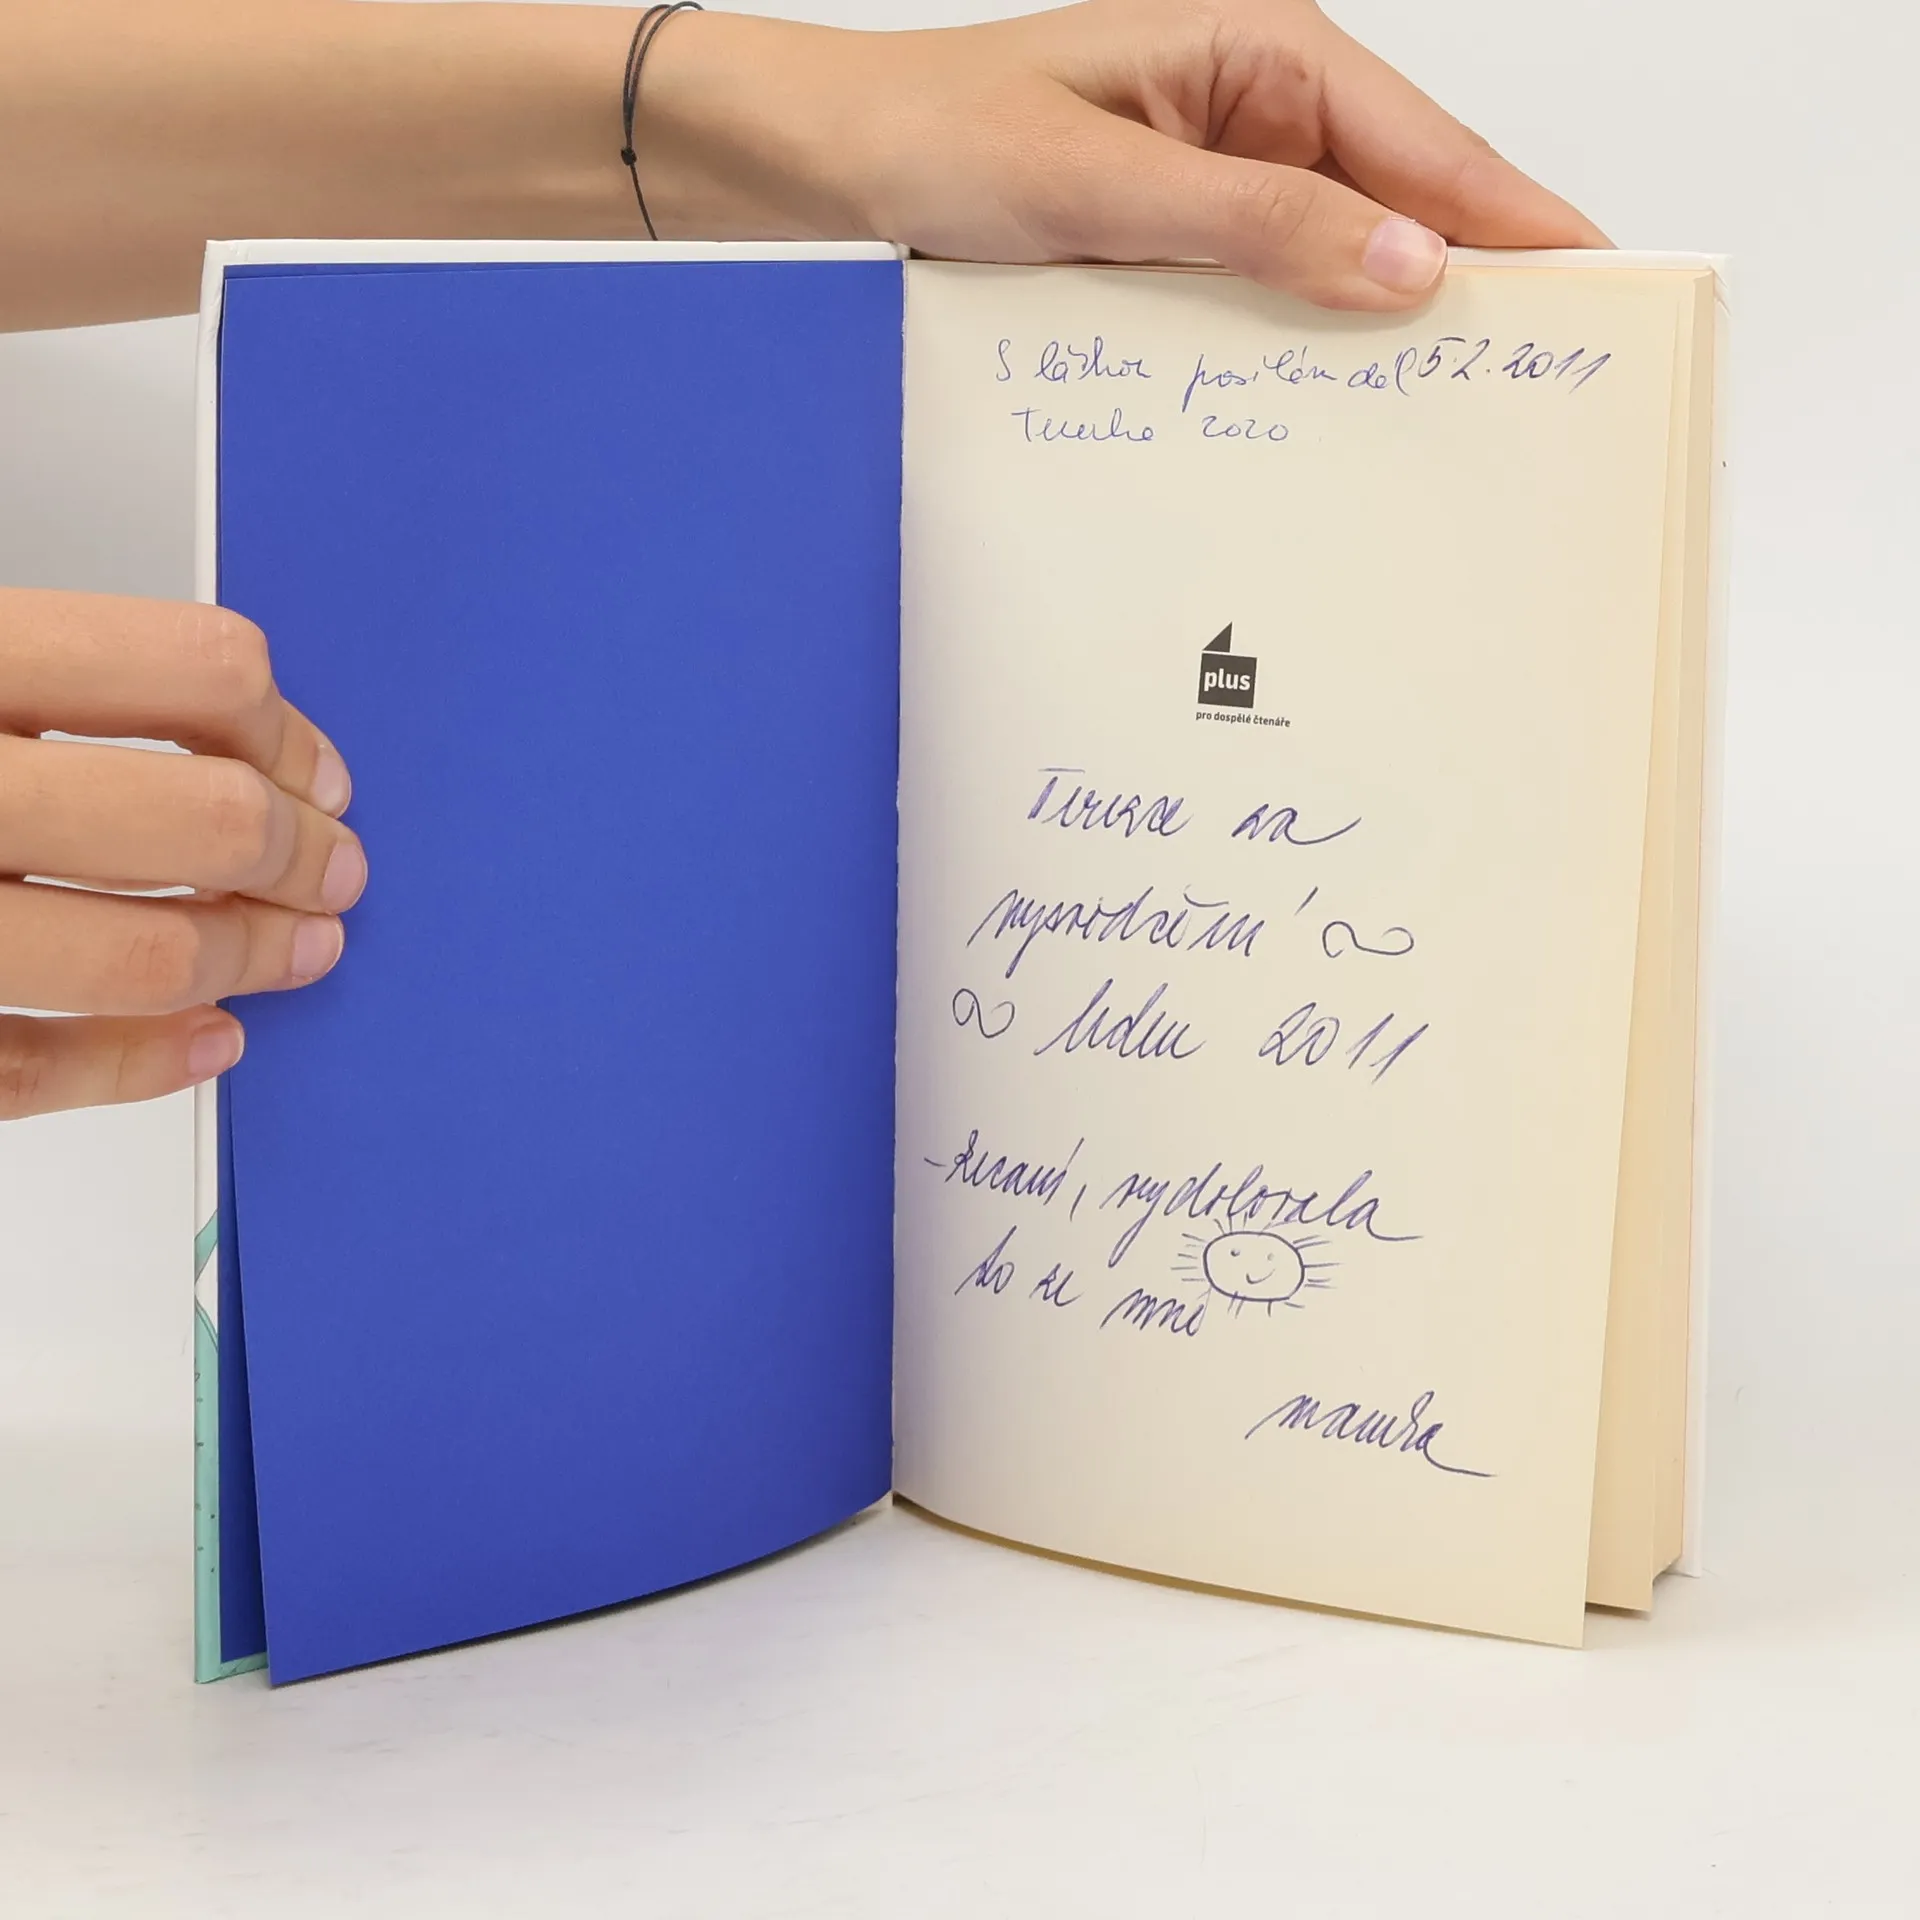 S láskou posílám dál 5.2.2011
Terezka 2020
plus
pro dospělé čtenáře
Tereze za
vysvědčení
leden 2011
-škrcaní, vydolovala
to ze mně
mamka